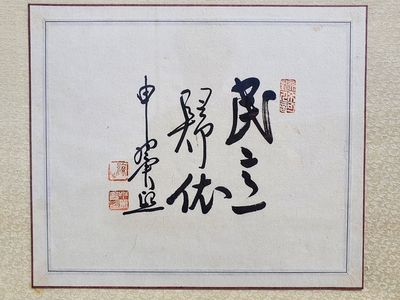 民之
歸依
申翼熙